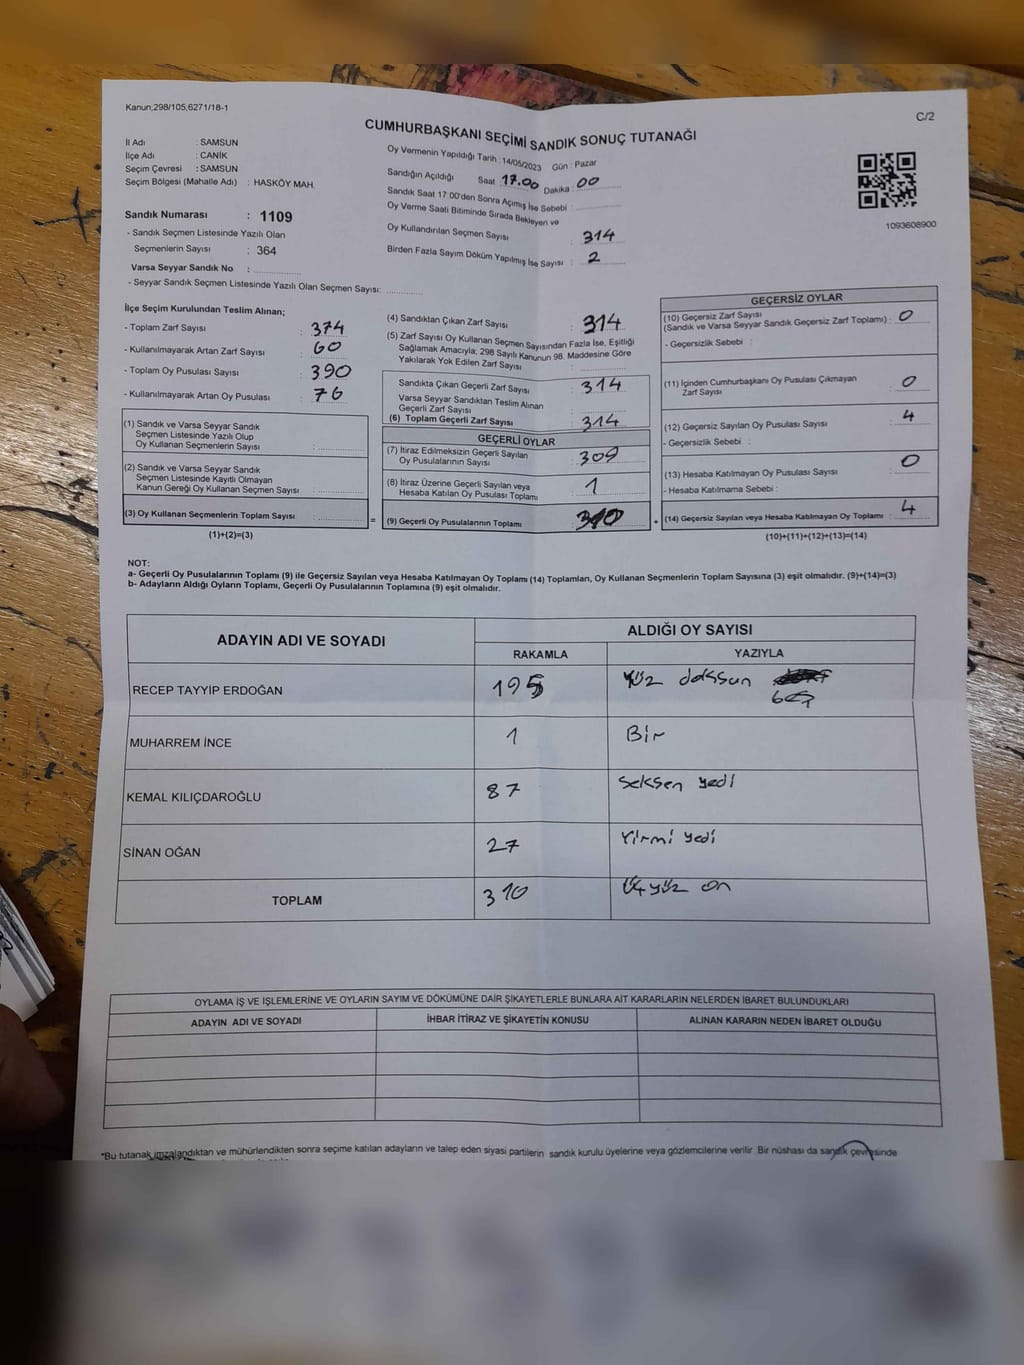 Kanun;298/105,6271/18-1
C/2
CUMHURBAŞKANI SEÇİMİ SANDIK SONUÇ TUTANAĞI
İl Adı : SAMSUN
İlçe Adı : CANİK
Seçim Çevresi : SAMSUN
Seçim Bölgesi (Mahalle Adı) : HASKÖY MAH.
Sandık Numarası : 1109
- Sandık Seçmen Listesinde Yazılı Olan
Seçmenlerin Sayısı : 364
Varsa Seyyar Sandık No : ..............
- Seyyar Sandık Seçmen Listesinde Yazılı Olan Seçmen Sayısı: ............
Oy Vermenin Yapıldığı Tarih : 14/05/2023 Gün : Pazar
Sandığın Açıldığı Saat : 17.00 Dakika : 00
Sandık Saat 17:00'den Sonra Açımış İse Sebebi : ..............
Oy Verme Saati Bitiminde Sırada Bekleyen ve
Oy Kullandırılan Seçmen Sayısı : 314
Birden Fazla Sayım Döküm Yapılmış İse Sayısı : 2
1093608900
İlçe Seçim Kurulundan Teslim Alınan;
- Toplam Zarf Sayısı : 374
- Kullanılmayarak Artan Zarf Sayısı : 60
- Toplam Oy Pusulası Sayısı : 390
- Kullanılmayarak Artan Oy Pusulası : 76
(1) Sandık ve Varsa Seyyar Sandık
Seçmen Listesinde Yazılı Olup
Oy Kullanan Seçmenlerin Sayısı : ..............
(2) Sandık ve Varsa Seyyar Sandık
Seçmen Listesinde Kayıtlı Olmayan
Kanun Gereği Oy Kullanan Seçmen Sayısı : ..............
(3) Oy Kullanan Seçmenlerin Toplam Sayısı : ..............
(1)+(2)=(3)
(4) Sandıktan Çıkan Zarf Sayısı : 314
(5) Zarf Sayısı Oy Kullanan Seçmen Sayısından Fazla İse, Eşitliği
Sağlamak Amacıyla; 298 Sayılı Kanunun 98. Maddesine Göre
Yakılarak Yok Edilen Zarf Sayısı : ..............
Sandıkta Çıkan Geçerli Zarf Sayısı : 314
Varsa Seyyar Sandıktan Teslim Alınan
Geçerli Zarf Sayısı : ..............
(6) Toplam Geçerli Zarf Sayısı : 314
GEÇERLİ OYLAR
(7) İtiraz Edilmeksizin Geçerli Sayılan
Oy Pusulalarının Sayısı : 309
(8) İtiraz Üzerine Geçerli Sayılan veya
Hesaba Katılan Oy Pusulası Toplamı : 1
= (9) Geçerli Oy Pusulalarının Toplamı : 310 +
GEÇERSİZ OYLAR
(10) Geçersiz Zarf Sayısı
(Sandık ve Varsa Seyyar Sandık Geçersiz Zarf Toplamı) : 0
- Geçersizlik Sebebi :
(11) İçinden Cumhurbaşkanı Oy Pusulası Çıkmayan
Zarf Sayısı : 0
(12) Geçersiz Sayılan Oy Pusulası Sayısı : 4
- Geçersizlik Sebebi :
(13) Hesaba Katılmayan Oy Pusulası Sayısı : 0
- Hesaba Katılmama Sebebi :
(14) Geçersiz Sayılan veya Hesaba Katılmayan Oy Toplamı : 4
(10)+(11)+(12)+(13)=(14)
NOT:
a- Geçerli Oy Pusulalarının Toplamı (9) ile Geçersiz Sayılan veya Hesaba Katılmayan Oy Toplamı (14) Toplamları, Oy Kullanan Seçmenlerin Toplam Sayısına (3) eşit olmalıdır. (9)+(14)=(3)
b- Adayların Aldığı Oyların Toplamı, Geçerli Oy Pusulalarının Toplamına (9) eşit olmalıdır.
ADAYIN ADI VE SOYADI ALDIĞI OY SAYISI
RAKAMLA YAZIYLA
RECEP TAYYİP ERDOĞAN 195 Yüz doksan beş
MUHARREM İNCE 1 Bir
KEMAL KILIÇDAROĞLU 87 Seksen yedi
SİNAN OĞAN 27 Yirmi yedi
TOPLAM 310 Üçyüz on
OYLAMA İŞ VE İŞLEMLERİNE VE OYLARIN SAYIM VE DÖKÜMÜNE DAİR ŞİKAYETLERLE BUNLARA AİT KARARLARIN NELERDEN İBARET BULUNDUKLARI
ADAYIN ADI VE SOYADI İHBAR İTİRAZ VE ŞİKAYETİN KONUSU ALINAN KARARIN NEDEN İBARET OLDUĞU
*Bu tutanak imzalandıktan ve mühürlendikten sonra seçime katılan adayların ve talep eden siyasi partilerin sandık kurulu üyelerine veya gözlemcilerine verilir. Bir nüshası da sandık çevresinde